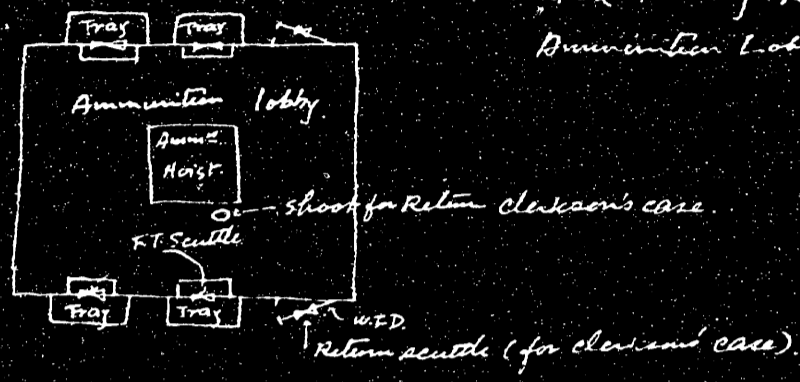 Ammunition Lob
Tray Tray
Ammunition lobby.
Ammn
Hoist.
Shoot for Return clarkson's case.
F.T. Scuttle
Tray Tray
W.T.D.
Return scuttle (for clarkson's case).